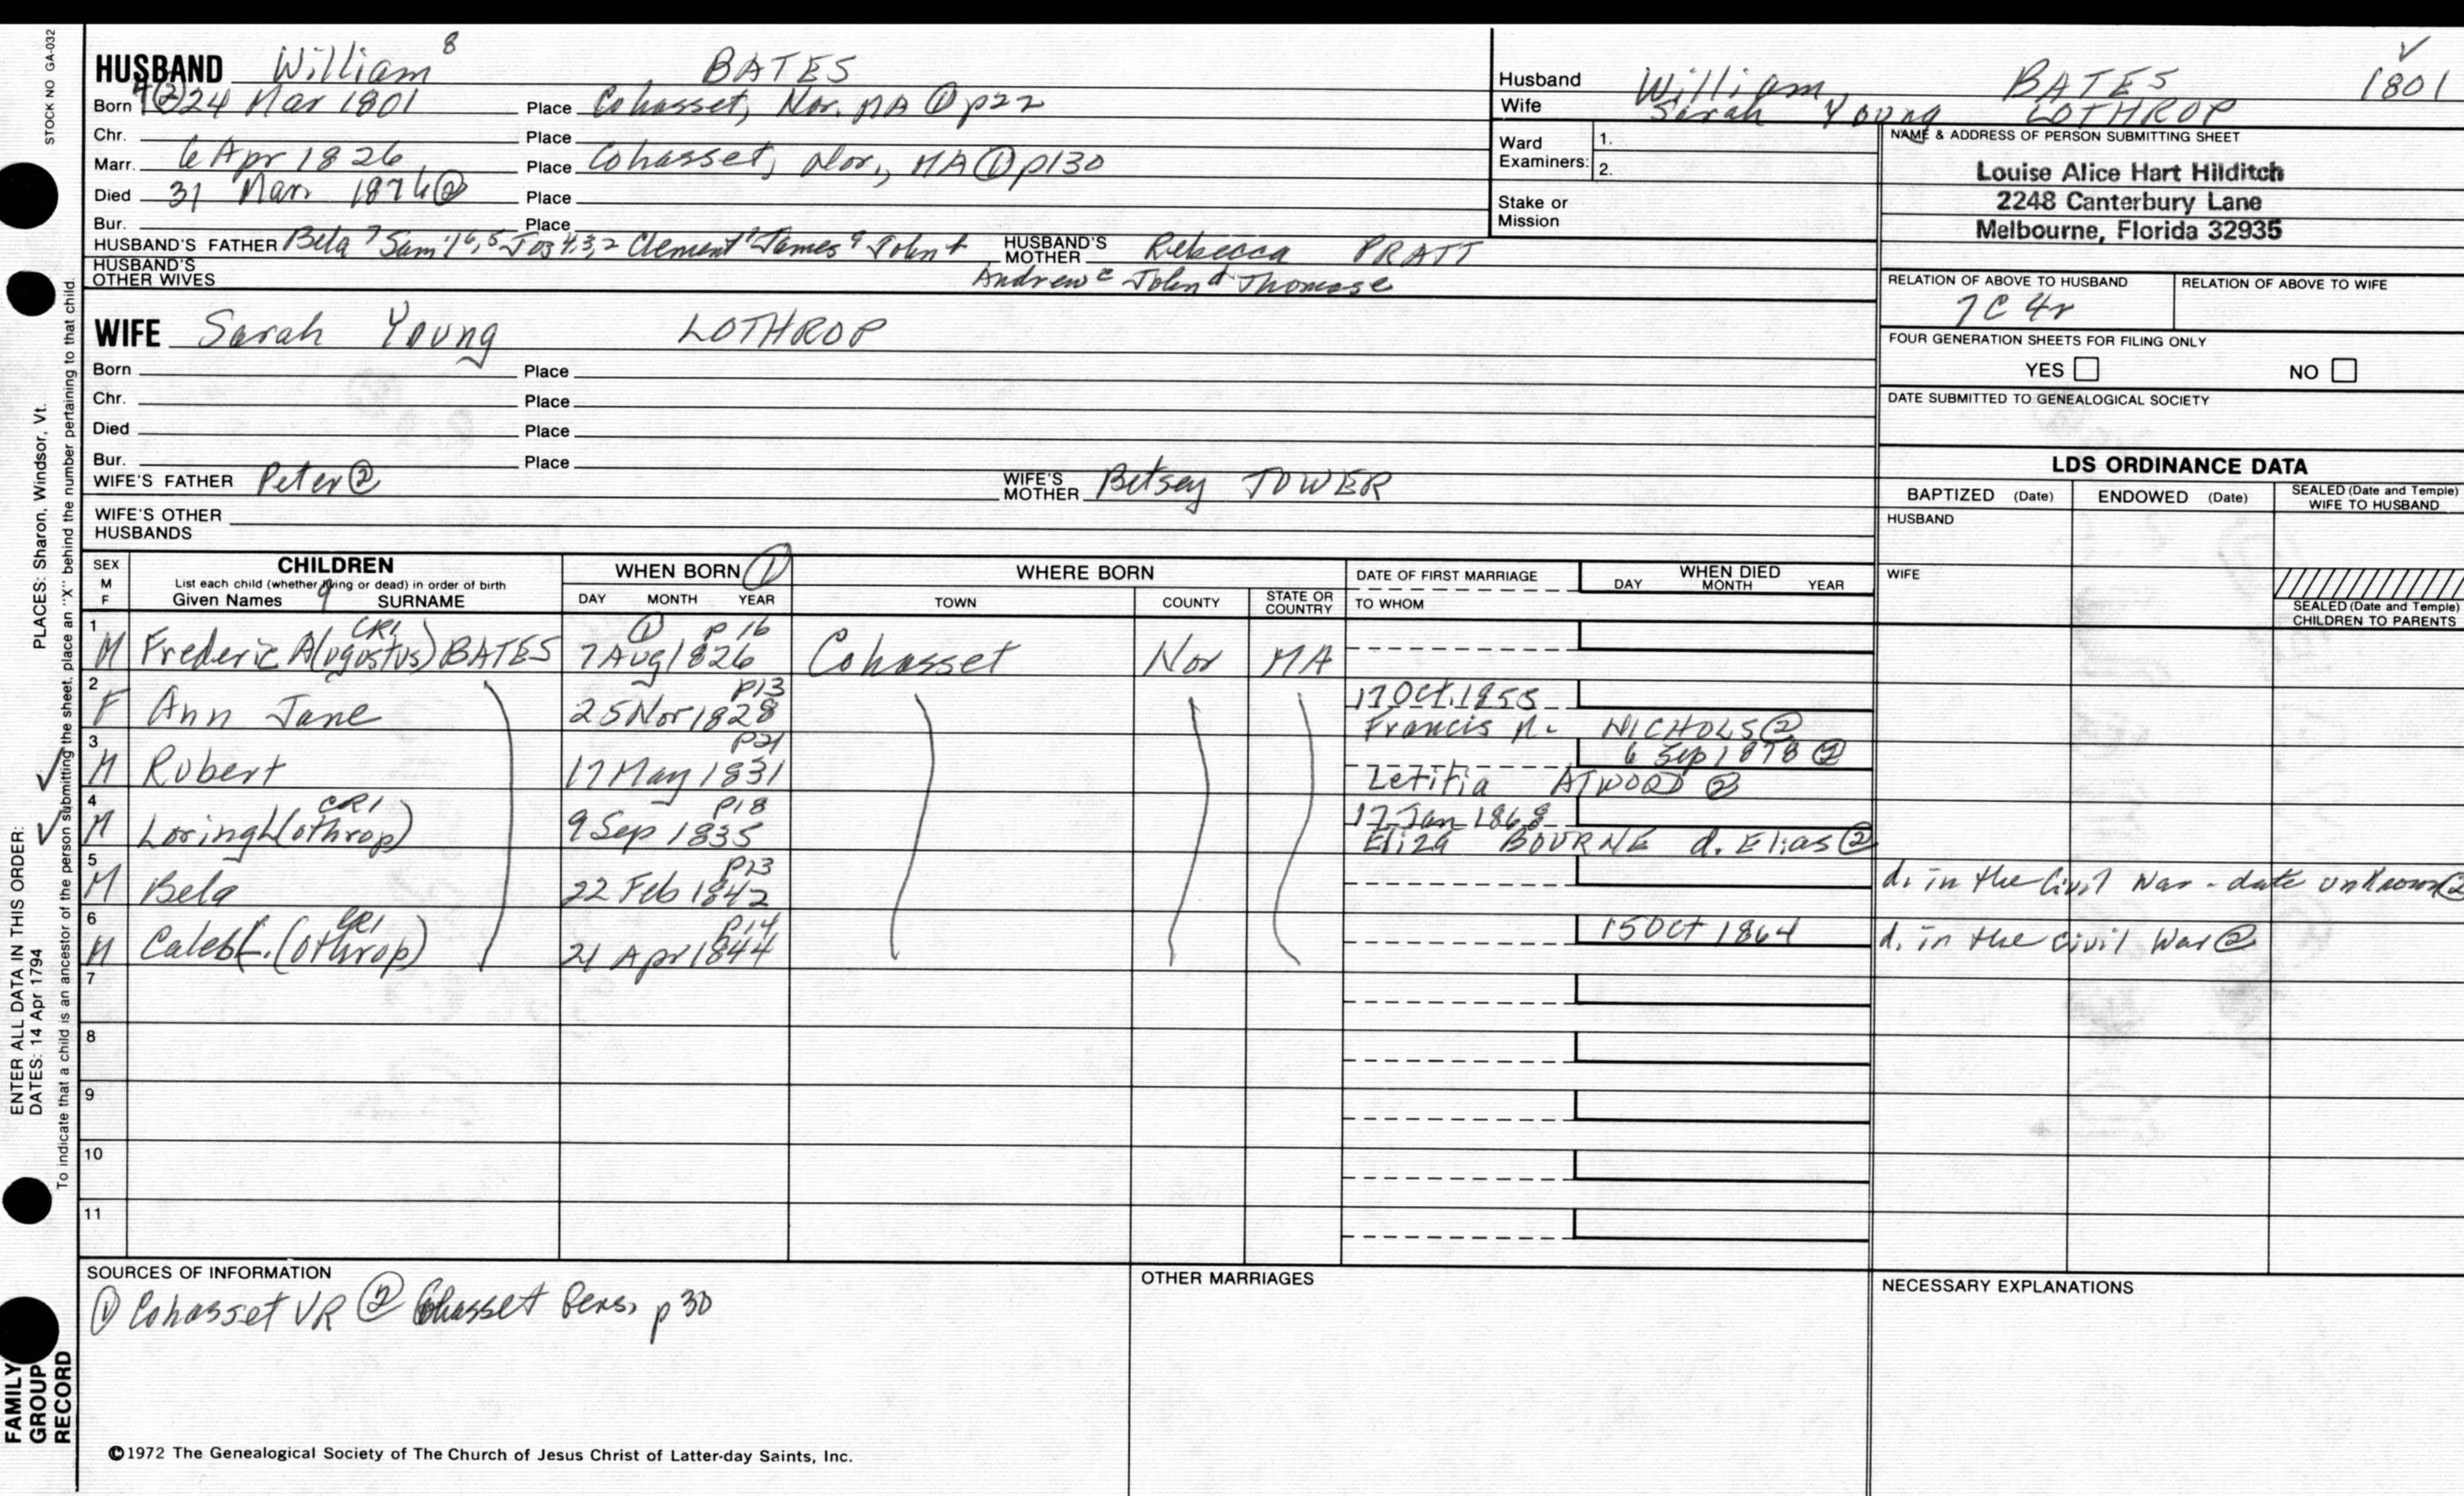 STOCK NO GA-032
HUSBAND William 8 BATES
Born ② 24 Mar 1801 Place Cohasset, Nor. MA ① p22
Chr. Place
Marr. 6 Apr 1826 Place Cohasset, Nor., MA ① p130
Died 31 Mar Place
Bur. Place
HUSBAND'S FATHER Bela 7 Sam'l 6,5 Jos 4,3,2 Clement 1 James a John b HUSBAND'S MOTHER Rebecca PRATT
HUSBAND'S OTHER WIVES Andrew c John d Thomas e
WIFE Sarah Young LOTHROP
Born Place
Chr. Place
Died Place
Bur. Place
WIFE'S FATHER Peter ② WIFE'S MOTHER Betsey TOWER
WIFE'S OTHER HUSBANDS
Husband William BATES 1801
Wife Sarah Young LOTHROP
Ward Examiners: 1. 2.
Stake or Mission
NAME & ADDRESS OF PERSON SUBMITTING SHEET
Louise Alice Hart Hilditch
2248 Canterbury Lane
Melbourne, Florida 32935
RELATION OF ABOVE TO HUSBAND RELATION OF ABOVE TO WIFE
7C 4r
FOUR GENERATION SHEETS FOR FILING ONLY
YES NO
DATE SUBMITTED TO GENEALOGICAL SOCIETY
LDS ORDINANCE DATA
BAPTIZED (Date) ENDOWED (Date) SEALED (Date and Temple) WIFE TO HUSBAND
HUSBAND
WIFE
SEALED (Date and Temple) CHILDREN TO PARENTS
SEX M F CHILDREN WHEN BORN ① WHERE BORN DATE OF FIRST MARRIAGE WHEN DIED
List each child (whether living or dead) in order of birth
Given Names 9 SURNAME DAY MONTH YEAR TOWN COUNTY STATE OR COUNTRY TO WHOM DAY MONTH YEAR
1 CR1 ① p16
M Frederic A(ugustus) BATES 7 Aug 1826 Cohasset Nor MA
2 p13 17 Oct. 1858
F Ann Jane 25 Nov 1828 Francis N. NICHOLS ②
3 p21 6 Sep 1878 ②
M Robert 17 May 1831 Letitia ATWOOD ②
4 CR1 p18 17 Jan 1868
M Loring L(othrop) 9 Sep 1835 Eliza BOURNE d. Elias ②
5 p13
M Bela 22 Feb 1842 d. in the Civil War - date unknown ②
6 CR1 p14 15 Oct 1864
M Caleb L.(othrop) 21 Apr 1844 d. in the Civil War ②
7
8
9
10
11
SOURCES OF INFORMATION OTHER MARRIAGES NECESSARY EXPLANATIONS
① Cohasset VR ② Cohasset Gens, p30
©1972 The Genealogical Society of The Church of Jesus Christ of Latter-day Saints, Inc.
ENTER ALL DATA IN THIS ORDER:
DATES: 14 Apr 1794 PLACES: Sharon, Windsor, Vt.
To indicate that a child is an ancestor of the person submitting the sheet, place an "X" behind the number pertaining to that child.
FAMILY
GROUP
RECORD